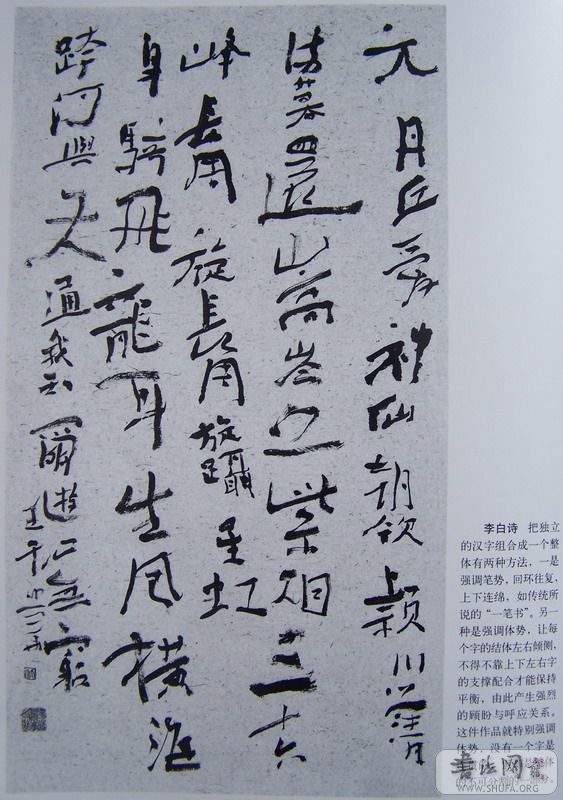 元丹丘愛神仙朝飲潁川之清
流暮還嵩岑之紫烟三十六
峰長周旋長周旋躡星虹
身騎飛龍耳生風橫
跨河與天通我知爾遊心無窮
李白诗 把独立
的汉字组合成一个整
体有两种方法，一是
强调笔势，回环往复，
上下连绵，如传统所
说的“一笔书”。另一
种是强调体势，让每
个字的结体左右倾侧，
不得不靠上下左右字
的支撑配合才能保持
平衡，由此产生强烈
的顾盼与呼应关系。
这件作品就特别强调
体势，没有一个字是
体
的不可分割的一部分。
書法网
WWW.SHUFA.ORG